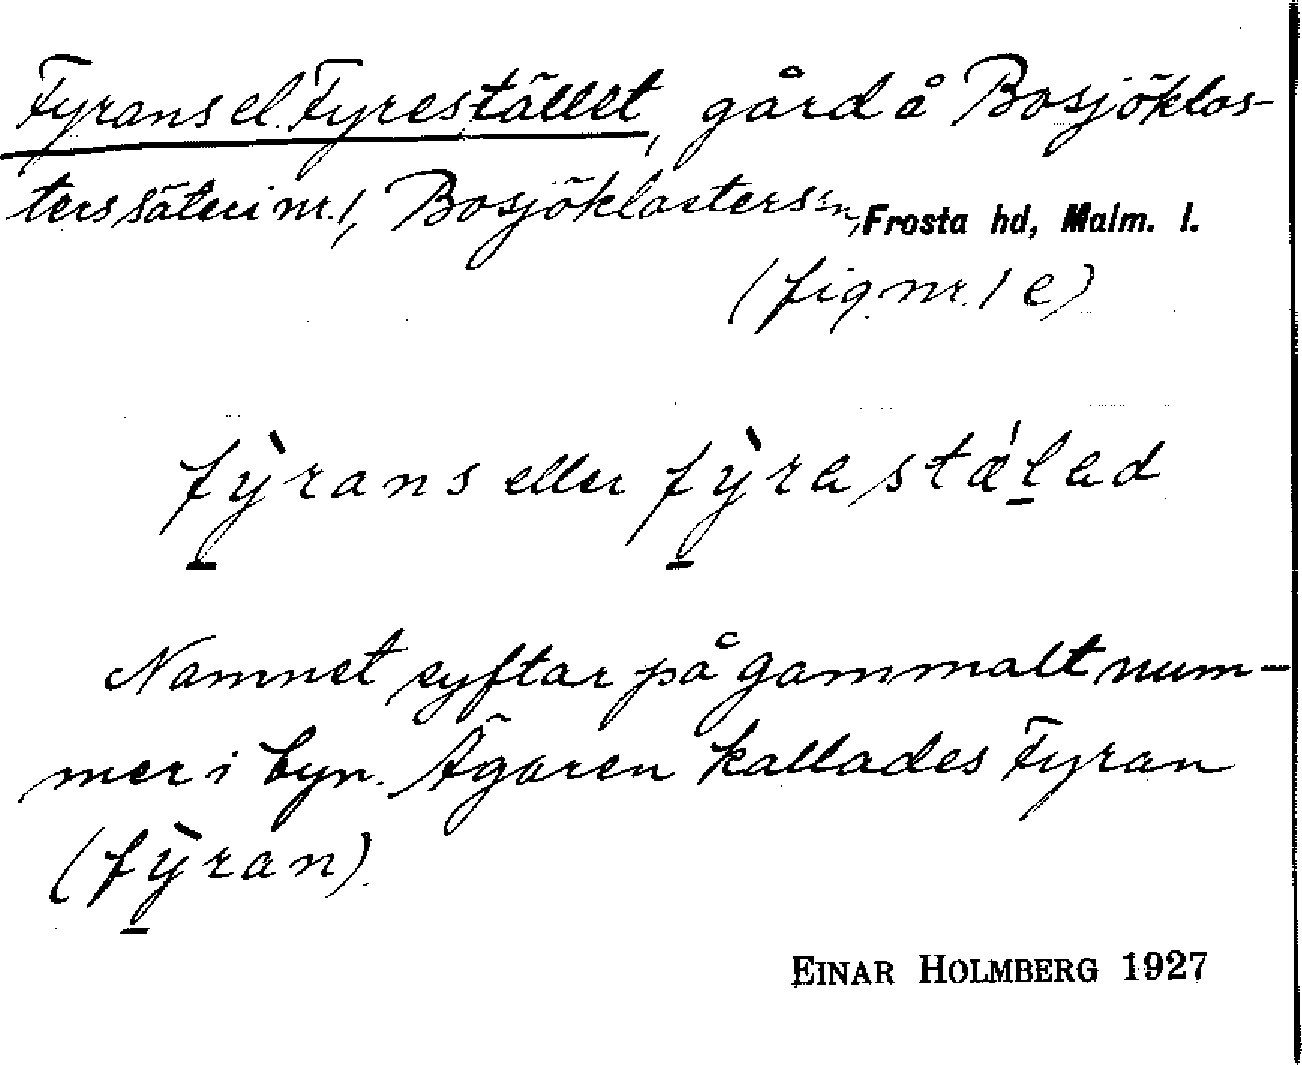 Fyrans el. Fyrestället, gård å Bosjöklos-
ters säteri nr. 1, Bosjöklosters sn, Frosta hd, Malm. l.
(fig. nr. 1 e)
fỳrans eller fỳra stǽlad
Namnet syftar på gammalt num-
mer i byn. Ägaren kallades Fyran
(fỳran).
EINAR HOLMBERG 1927